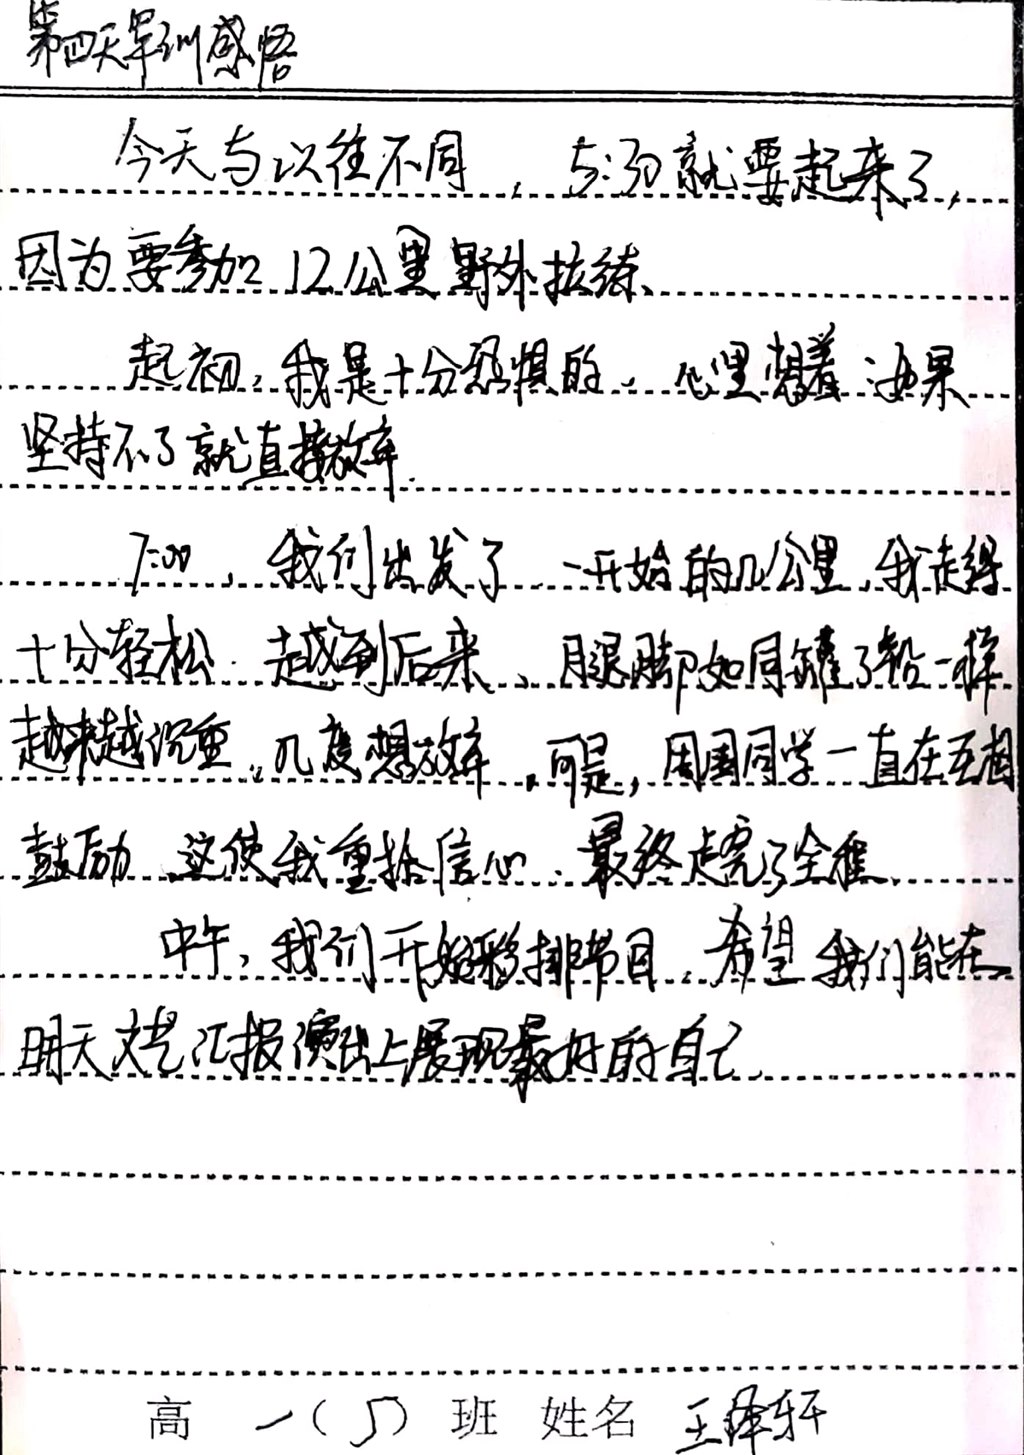 第四天军训感悟
今天与以往不同，5:30就要起来了，
因为要参加12公里野外拉练、
起初，我是十分恐惧的，心里想着：如果
坚持不了就直接放弃.
7:00，我们出发了 一开始的几公里，我走得
十分轻松．越到后来、腿脚如同罐了铅一样
越来越沉重，几度想放弃，可是，周围同学一直在互相
鼓励，这使我重拾信心、最终走完了全程、
中午，我们开始彩排节目，希望我们能在
明天文艺汇报演出上展现最好的自己、
高一（5）班 姓名 王泽轩